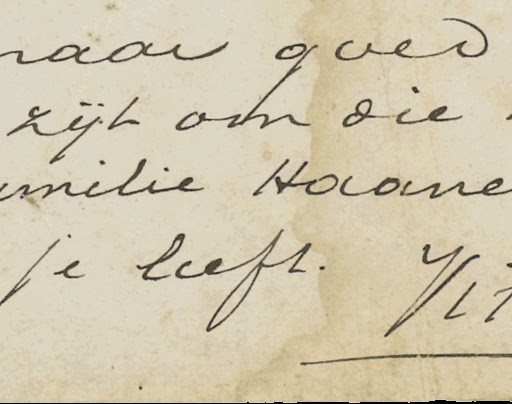 naar goed
zijt om die
amilie Haane
je leeft.